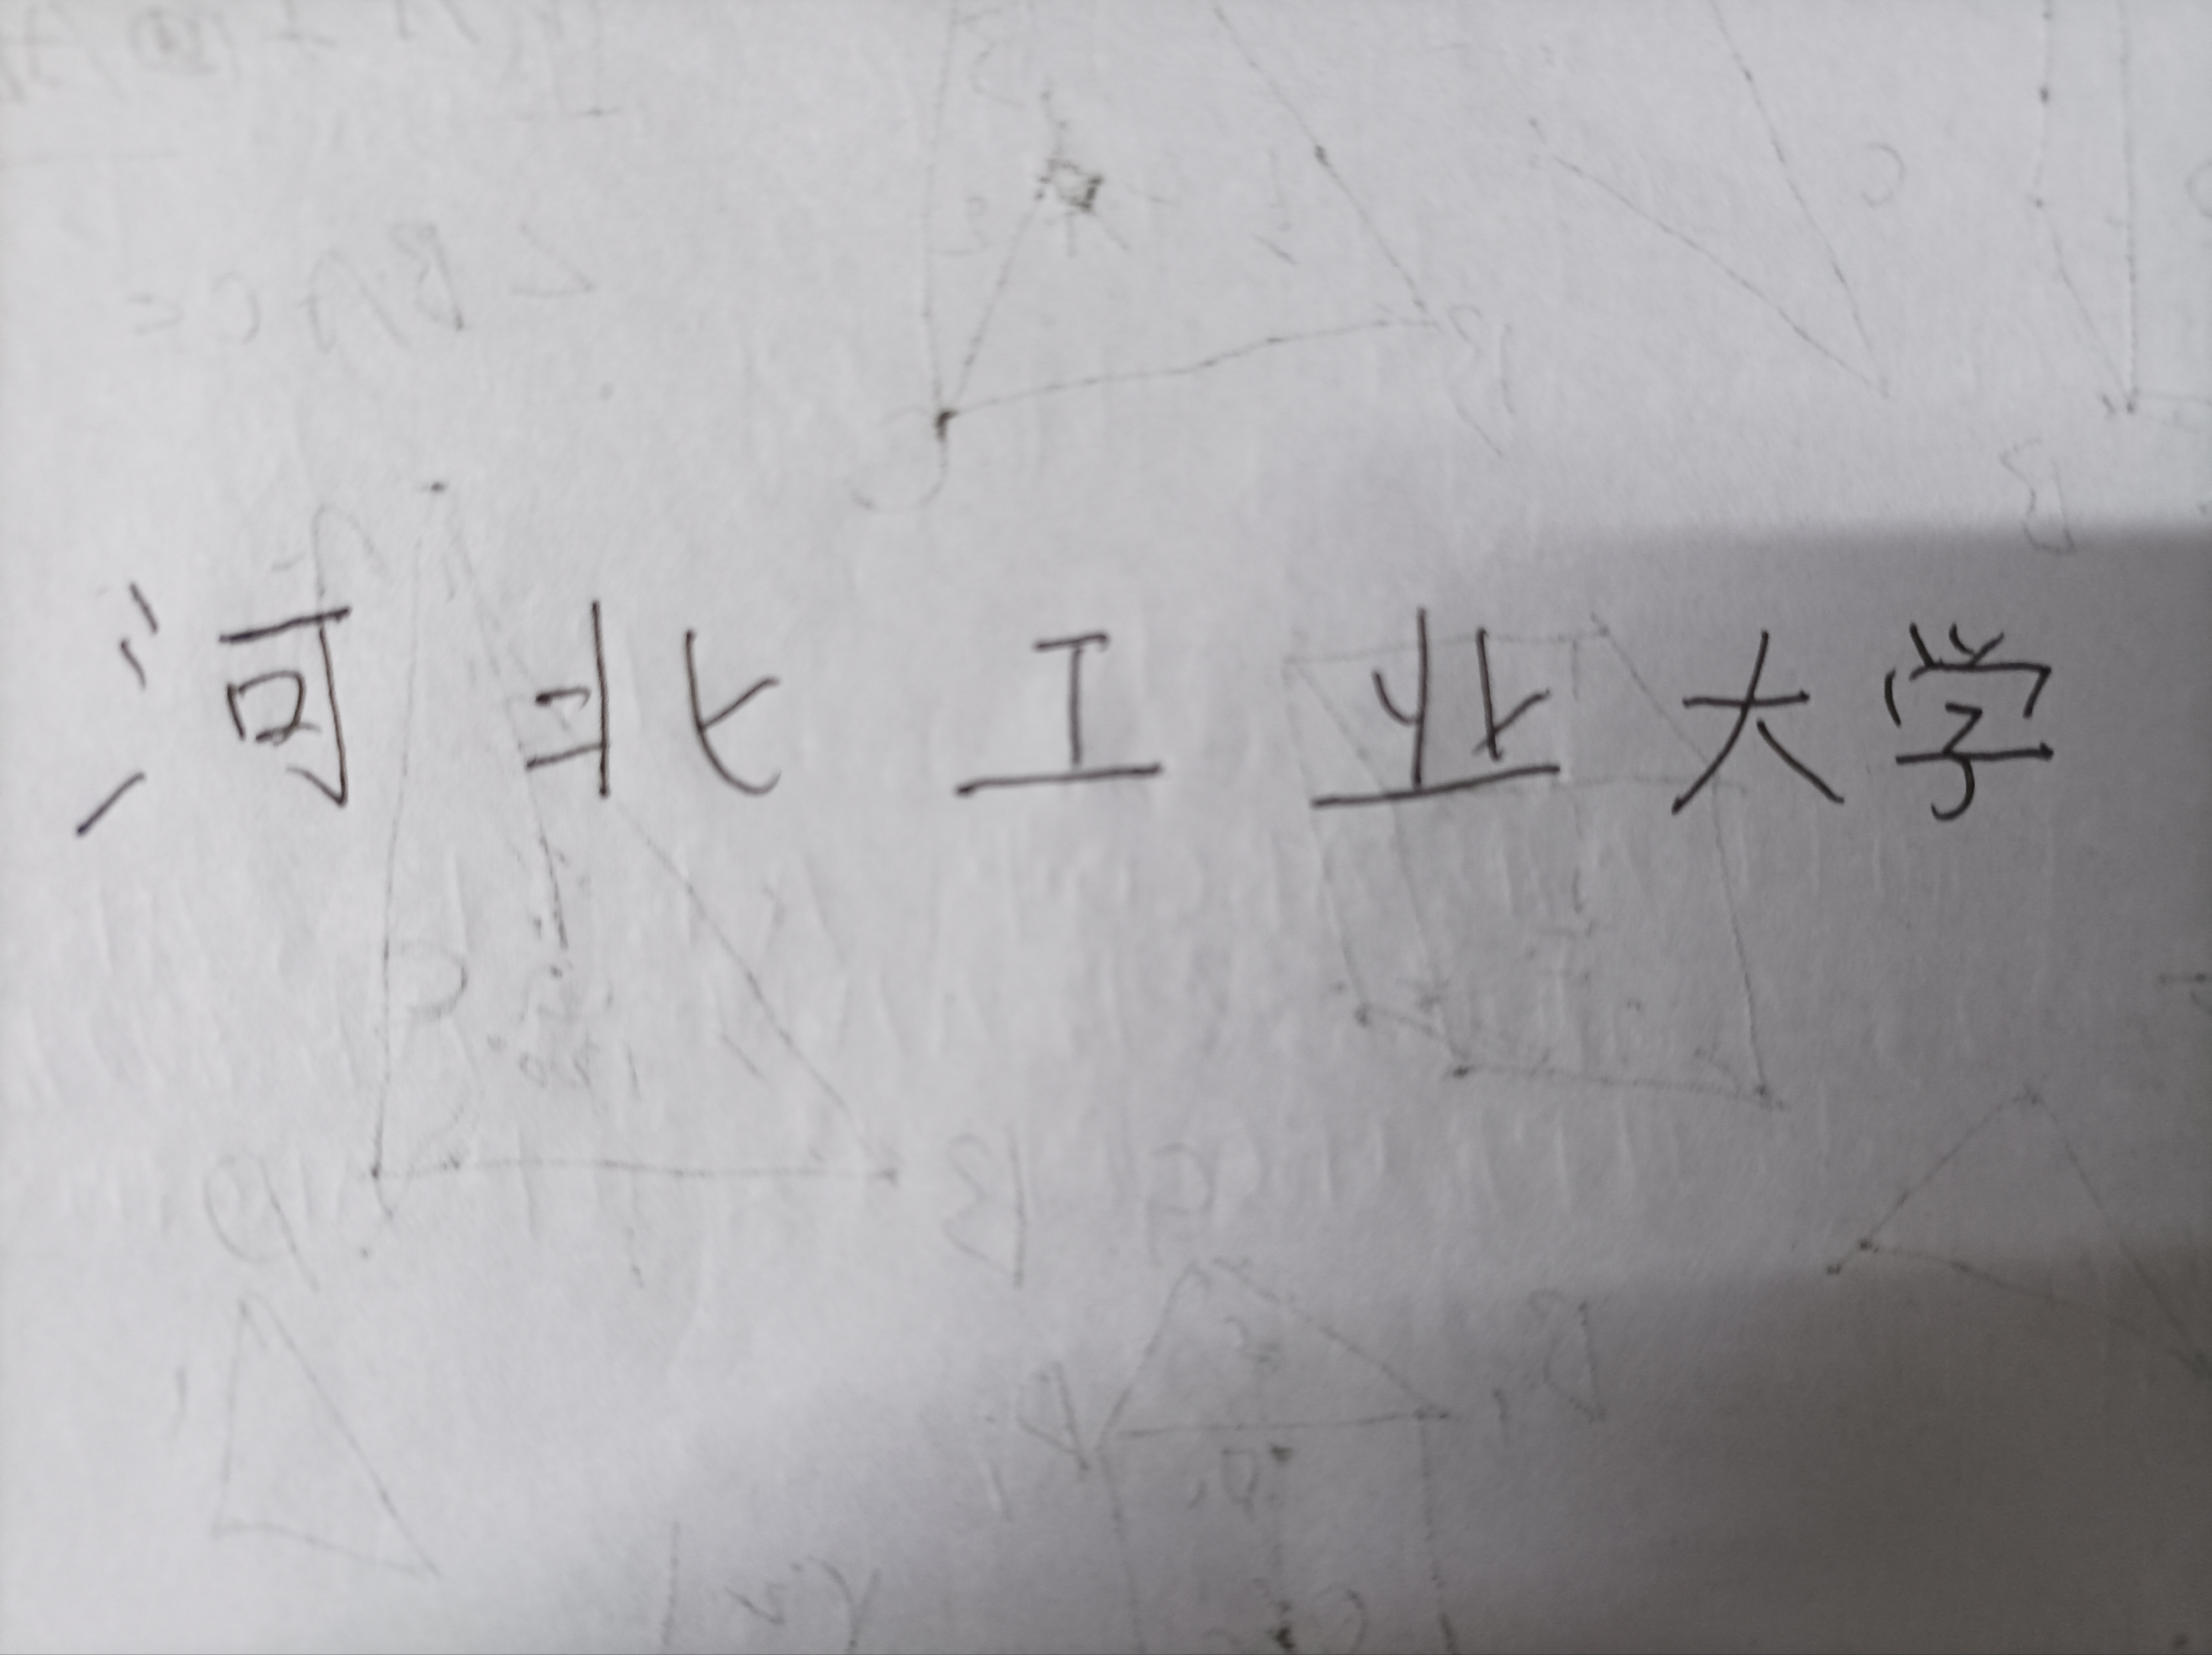 河北工业大学